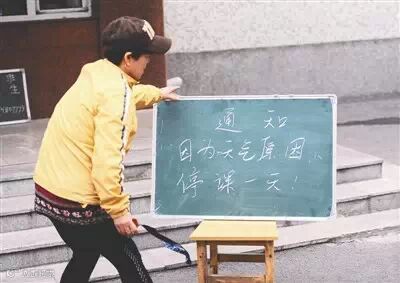 通知
因为天气原因,
停课一天!